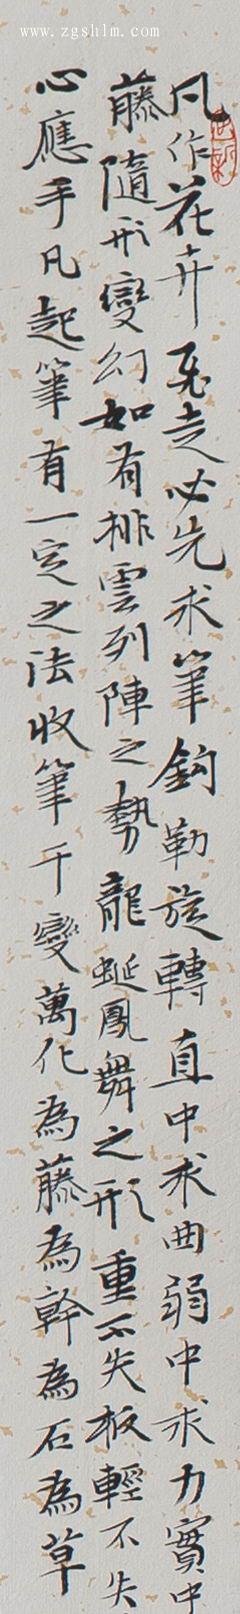 www.zgshlm.com
凡作花卉飛走必先求筆鈎勒旋轉直中求曲弱中求力實中
藤隨形變幻如有排雲列陣之勢龍蜒鳳舞之形重不失板輕不失
心應手凡起筆有一定之法收筆千變萬化為藤為幹為石為草